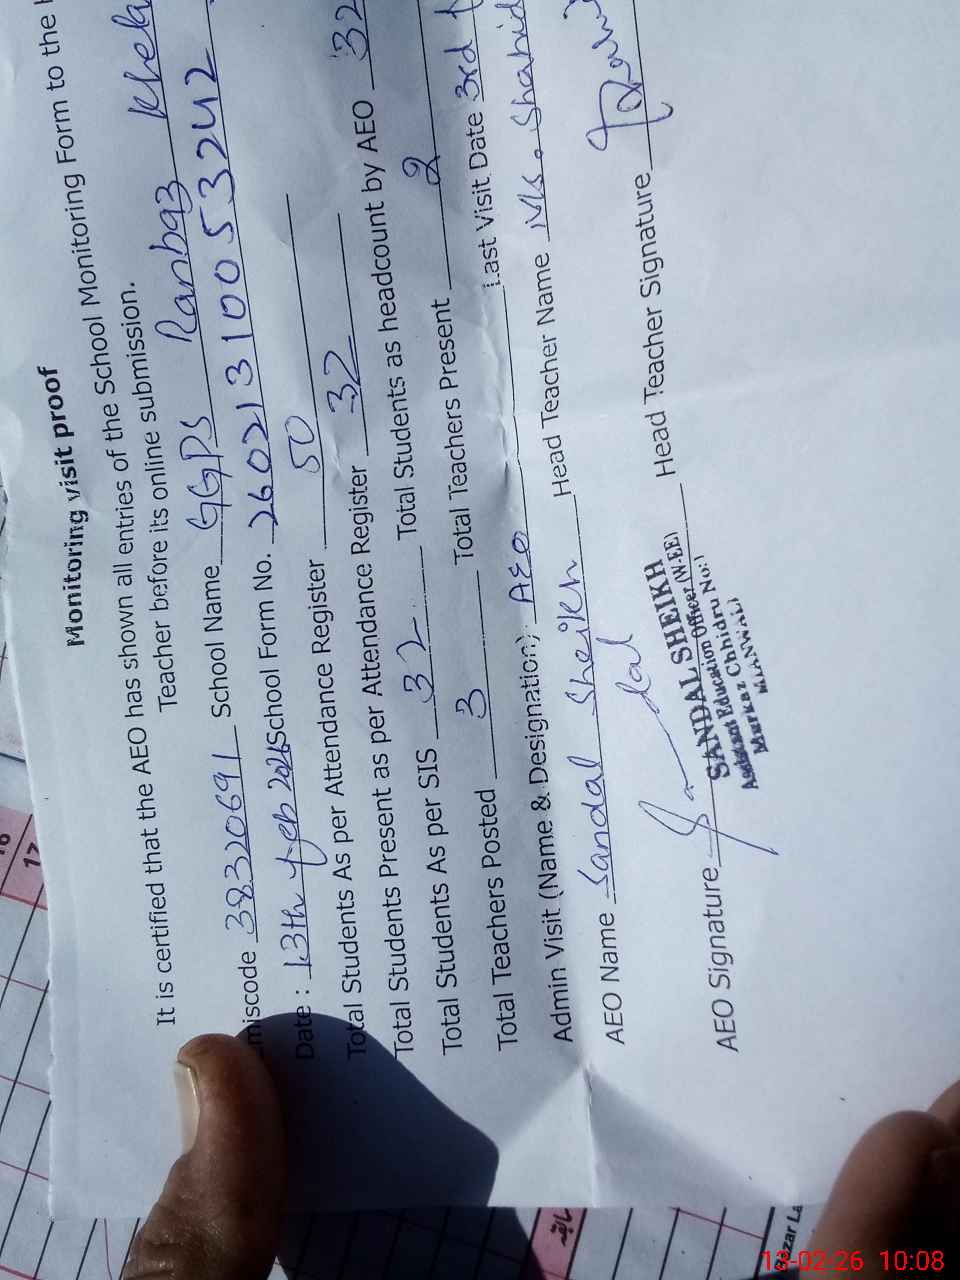 Monitoring visit proof
It is certified that the AEO has shown all entries of the School Monitoring Form to the
Teacher before its online submission.
Emiscode 38320691 School Name GGPS Ranbaz Khela
Date: 13th feb 2026 School Form No. 26021310053242
Total Students As per Attendance Register 50
Total Students Present as per Attendance Register 32 Total Students as headcount by AEO 32
Total Students As per SIS 32
Total Teachers Posted 3 Total Teachers Present 2
Admin Visit (Name & Designation) AEO Last Visit Date 3rd
AEO Name Sandal Sheikh Head Teacher Name Ms. Shahid
AEO Signature Head Teacher Signature
SANDAL SHEIKH
Assistant Education Officer (W-EE)
Markaz Chhidru No:1
MIANWALI
16
17
13-02-26 10:08